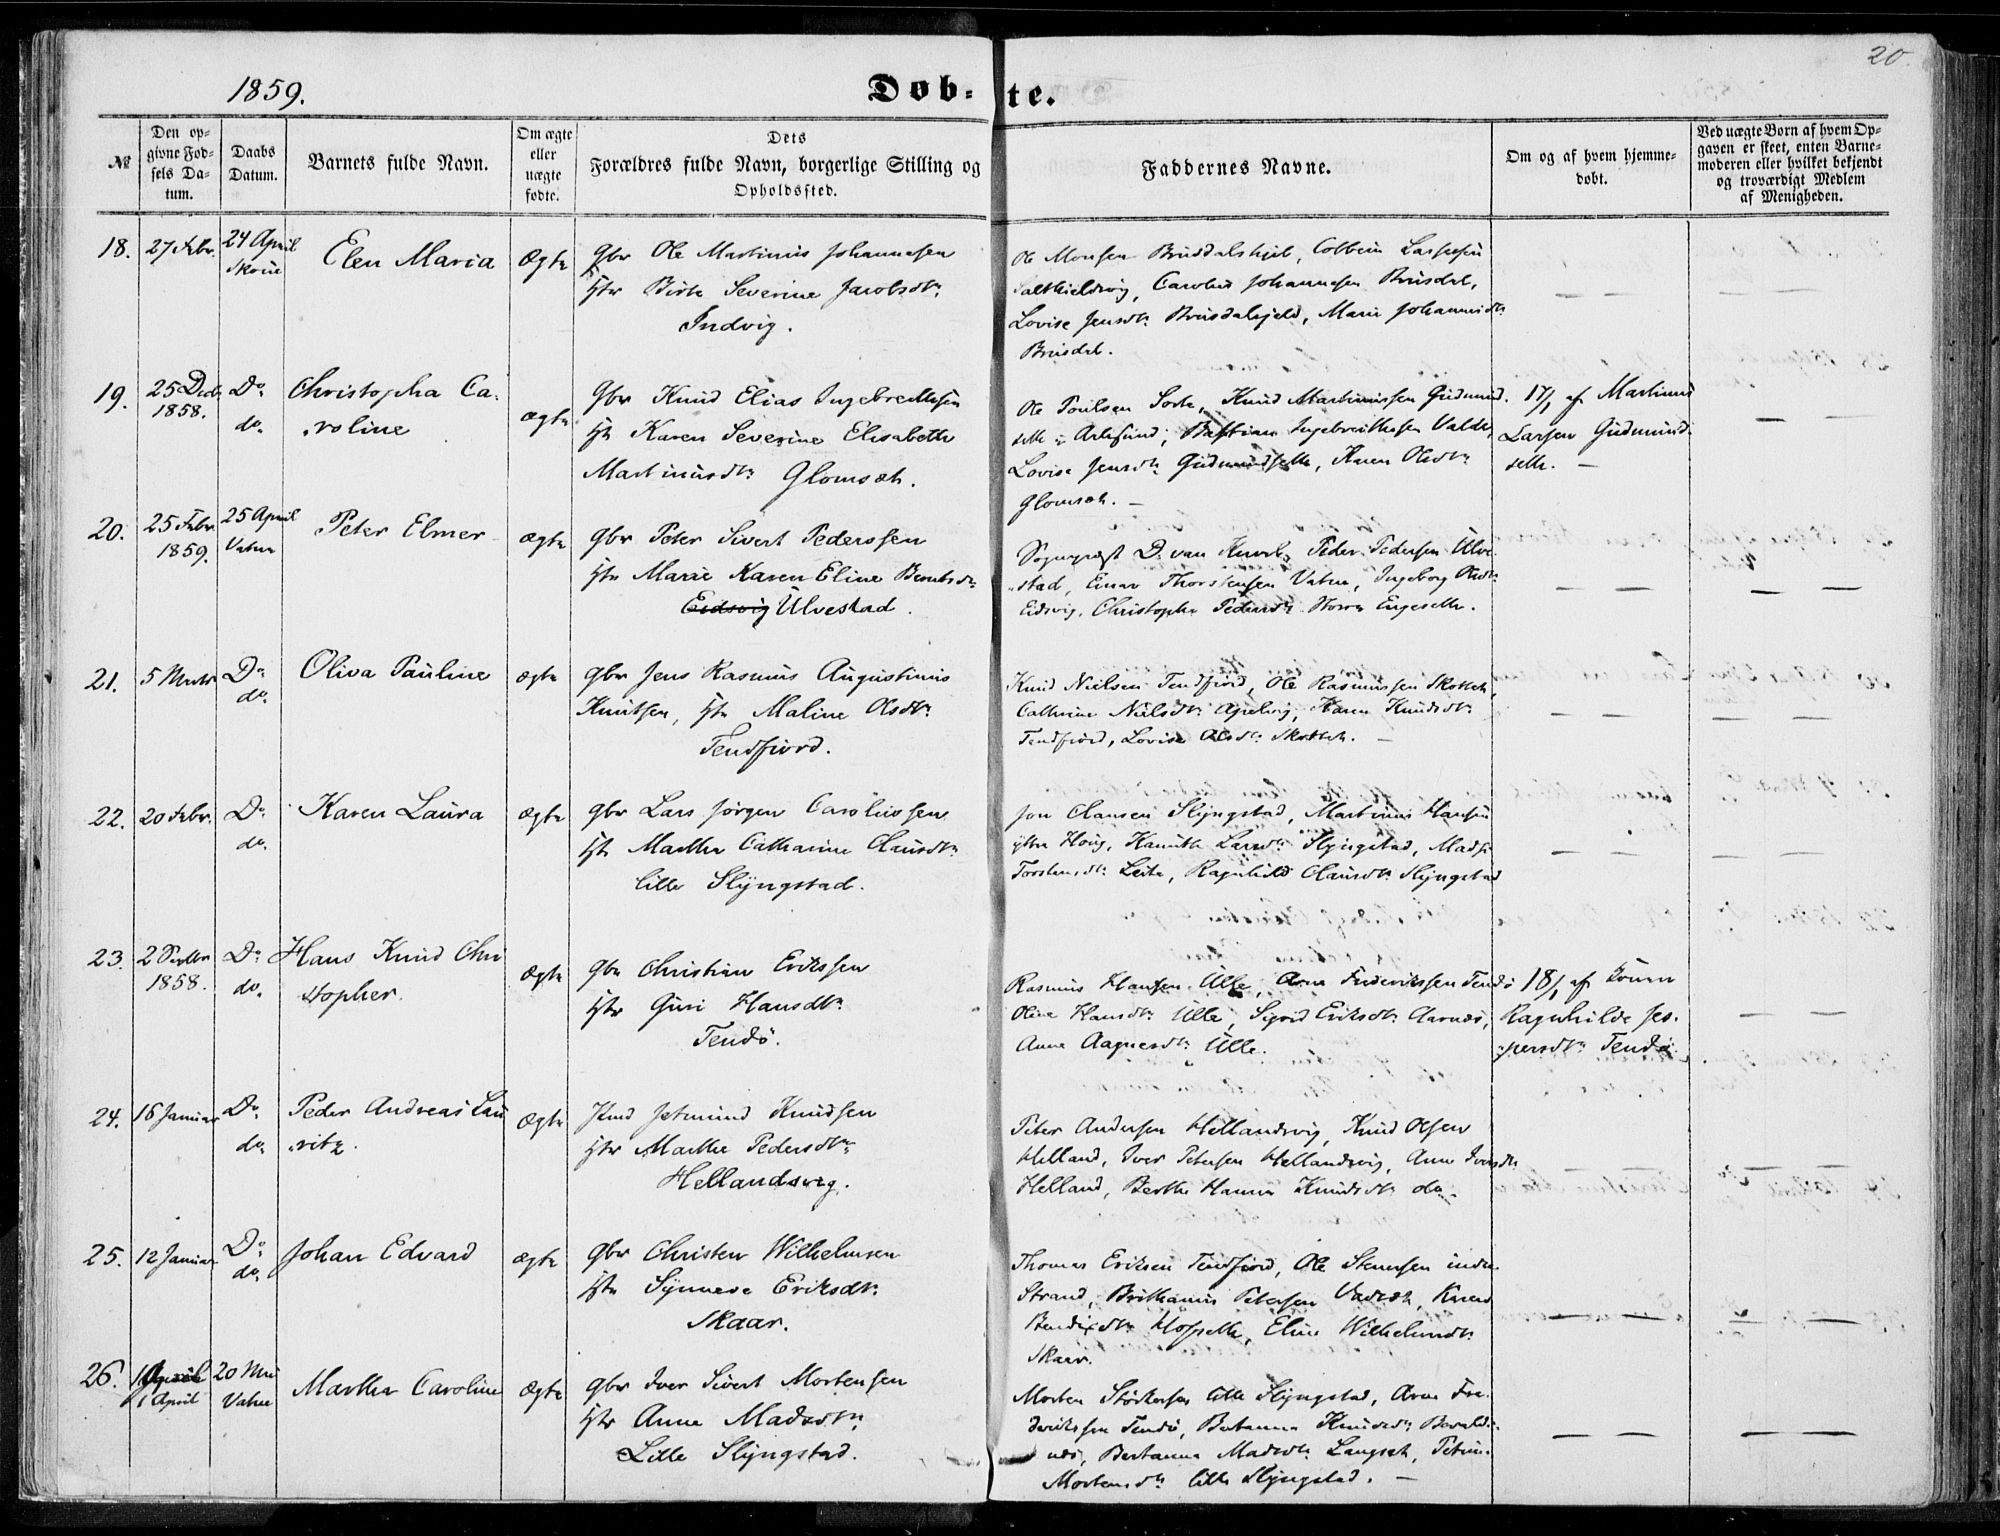 20.
1859.
Døb-te.
№
Den op-
givne Fød-
sels Da-
tum.
Daabs
Datum.
Barnets fulde Navn.
Om ægte
eller
uægte
fødte.
Dets
Forældres fulde Navn, borgerlige Stilling og
Opholdssted.
Faddernes Navne.
Om og af hvem hjemme-
døbt.
Ved uægte Børn af hvem Op-
gaven er skeet, enten Barne-
moderen eller hvilket bekjendt
og troværdigt Medlem
af Menigheden.
18.
27 Febr.
24 April
Skoue
Elen Maria
Ægte
Gbr Ole Martinus Johannesen
Hstr Birte Severine Jacobsdtr
Indvig.
Ole Monsen Brusdalshjel, Colbein
Carolus Johannesen Brusdal,
Lovise Jensdtr Brusdalsjeld, Marie Johannisdtr
Brusdal.
— —
— —
19.
25 Decb
1858.
Do
do.
Christopha Ca-
roline
ægte
Gbr Knud Elias Ingebrethsen
Hstr Karen Severine Elisabeth
Martinusdtr Glomsæt.
Ole Poulsen Sorte, Knud Martinussen Gudmund-
sette i Aalesund, Bastian Ingebrethsen Valde,
Lovise Jensdtr Gudmundsette, Karen Olsdtr
Glomsæt. —
17/1 af Martinus
Larsen Gudmund-
sette. —
— —
20.
25 Febr
1859.
25 April
Vatne
Peter Elmer
ægte
Gbr Peter Sivert Pederssen
Hstr Marie Karen Eline Berntsdtr
Eidsvig Ulvestad.
Sognepræst D. van Peder Pedersen Ulve-
stad, Einar Thorstensen Vatne, Ingeborg Olsdtr
Eidsvig, Christopha Pedersdtr Store Engesette.
— —
— —
21.
5 Marts
Do
do.
Oliva Pauline
ægte
Gbr Jens Rasmus Augustinus
Knutsen, Hstr Maline Olsdtr
Tenfjord.
Knud Nielsen Tendfjord, Ole Rasmussen Skottet,
Cathrine Nielsdtr Apelvig, Karen Knudsdtr
Tendfjord, Lovise Olsdtr Skottet. —
— —
— —
22.
20 Febr.
Do
do.
Karen Laura
ægte
Gbr Lars Jørgen Carolussen
Hstr Marthe Catharine Clausdtr
lille Slyngstad.
Jon Clausen Slyngstad, Martinus Hansen
ytre Houg, Larsdtr Slyngstad, Madsi
Torstensdtr Leite, Ragnhild Clausdtr Slyngstad
— —
— —
23.
2 Septbr
1858.
Do
do.
Hans Knud Chri
stopher.
ægte
Gbr Christian Erikssen
Hstr Guri Hansdtr
Tendø.
Rasmus Hansen Ulle, Arne Frederikssen Tendø
Oline Hansdtr Ulle, Sigrid Eriksdtr Aarnes,
Anne Aagnesdtr Ulle.
18/1 af Konen
Ragnhilde Jes-
persdtr Tendø.
— —
24.
16 Januar
Do
do.
Peder Andreas Lau
ritz.
Ægte
Jetmund Knudsen
Hstr Marthe Pedersdtr
Hellandsvig.
Peter Andersen Hellandsvig, Knud Olsen
Helland, Iver Petersen Hellandsvig, Anne Iversdtr
Helland, Berthe Hanna Knudsdtr do.
— —
— —
25.
12 Januar
Do
do.
Johan Edvard
ægte
Gbr Christen Wilhelmsen
Hstr Synneve Eriksdtr
Skaar.
Thomas Eriksen Tendfjord, Ole Stenersen indre
Strand, Brithanus Petersen Vadset, Karen
Bendixdtr Hofsette, Eline Wilhelmsdtr
Skaar.
— —
— —
26.
April
1 April
20 Mai
Vatne
Marthe Caroline
Ægte
Gbr Iver Sivert Mortensen
Hstr Anne Madsdtr
Lille Slyngstad.
Morten Størkersen lille Slyngstad, Arne Fre-
derikssen Tendø, Bertanna Knudsdtr
Bertanna Madsdtr Langset, Petrine
Mortensdtr lille Slyngstad. —
— —
— —